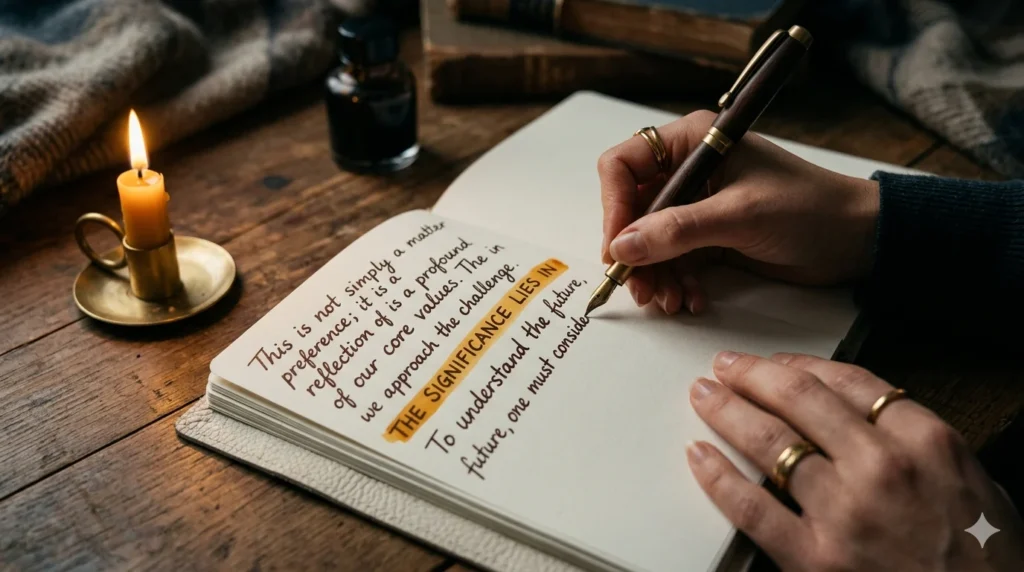 This is not simply a matter
preference; it is a
reflection of is a profound
of our core values. The in
we approach the challenge.
THE SIGNIFICANCE LIES IN
To understand the future,
future, one must consider